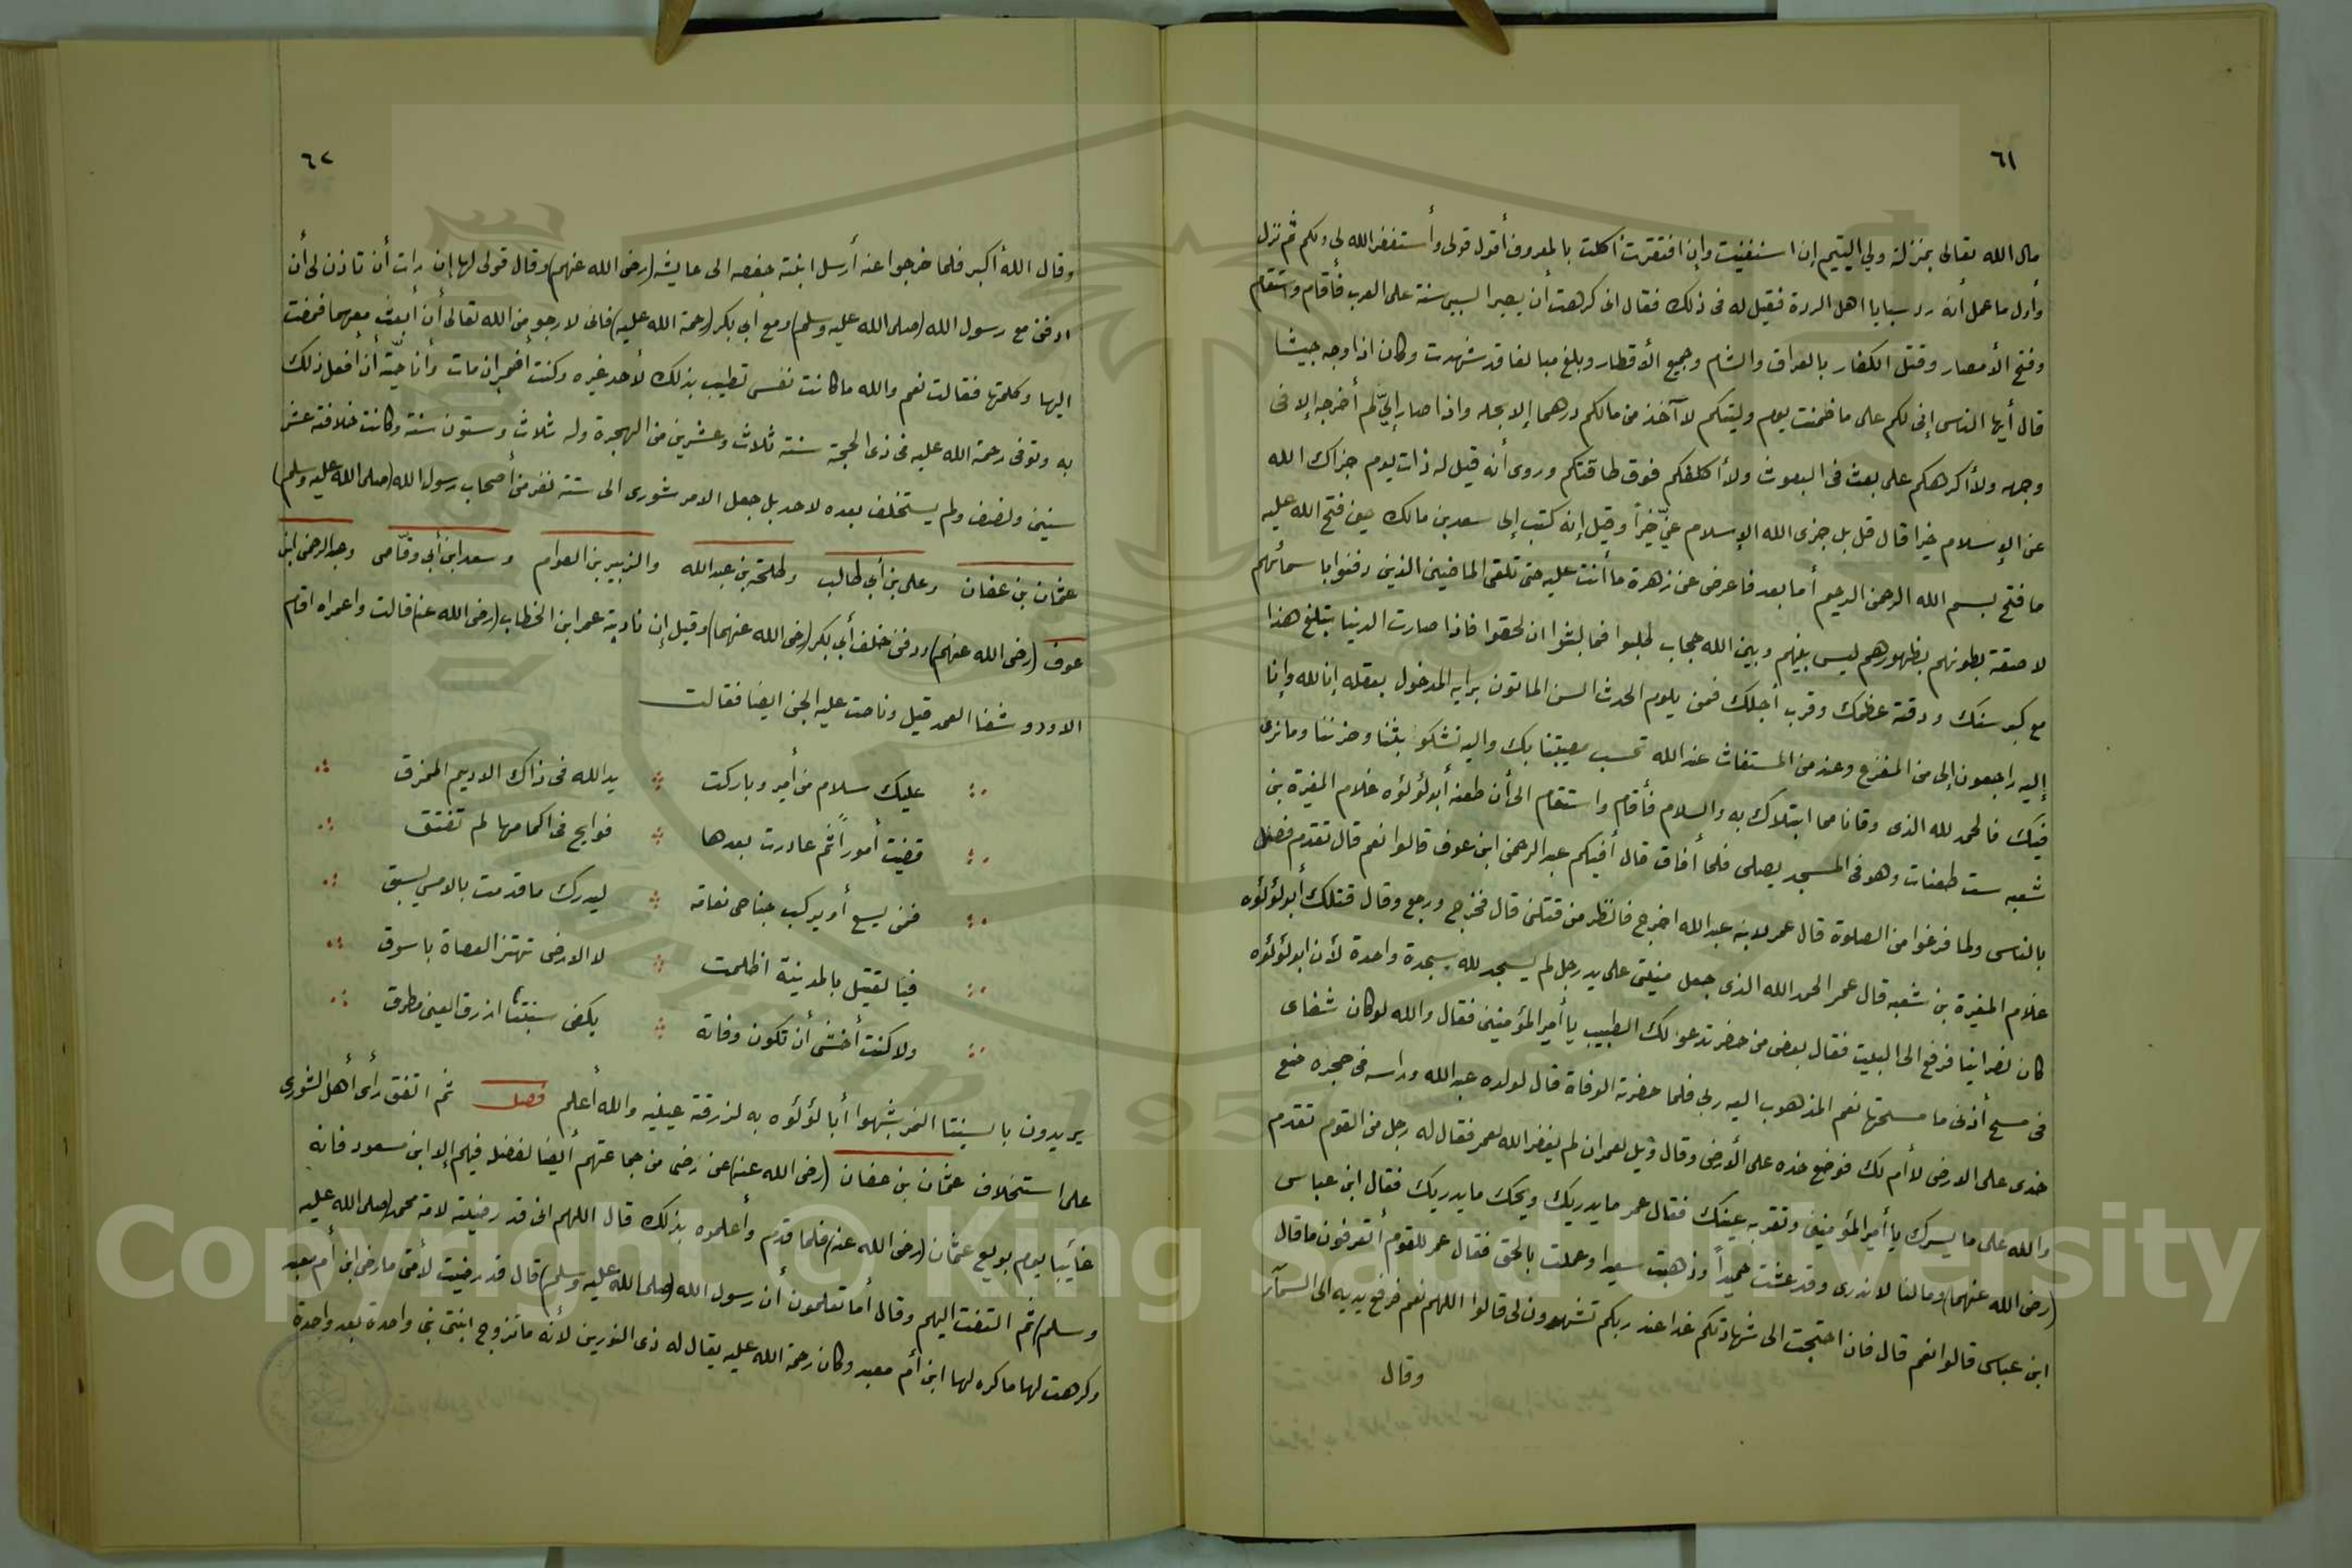 ٦١
مال الله تعالى بمنزلة ولي اليتيم إن استغنيت وإن افتقرت أكلت بالمعروف أقول قولى وأستغفر الله لى ولكم ثم نزل
وأول ما عمل أنه رد سبايا اهل الردة فقيل له فى ذلك فقال انى كرهت أن يصير السبي سنة على العرب فأقام واستقام
وفتح الأمصار وقتل الكفار بالعراق والشام وجميع الأقطار وبلغ مبالغا قد شهرت وكان اذا وجه جيشا
قال أيها الناس إنى لكم على ما ضمنت يوم وليتكم لا آخذ من مالكم درهما إلا بحله واذا صار إليّ لم أخرجه إلا فى
وجهه ولا أكرهكم على بعث فى البعوث ولا أكلفكم فوق طاقتكم وروى أنه قيل له ذات يوم جزاك الله
عن الإسلام خيرا قال قل بل جزى الله الإسلام عنّي خيراً وقيل إنه كتب إلى سعد بن مالك حين فتح الله عليه
ما فتح بسم الله الرحمن الرحيم أما بعد فاعرض عن زهرة ما أنت عليه حتى تلقى الماضين الذين دفنوا با سمائهم
لاصقة بطونهم بظهورهم ليس بينهم وبين الله حجاب طلبوا فما لبثوا ان لحقوا فاذا صارت الدنيا بتلغ هذا
مع كبر سنك ودقة عظمك وقرب أجلك فمن يلوم الحدث السن المأنون برايه المدخول بعقله إنا لله وإنا
إليه راجعون إلى من المفزع وعند من المستغاث عند الله تحسب مصيبتنا بك واليه نشكوا بثنا وحزننا وما نرى
فيك فالحمد لله الذى وقانا مما ابتلاك به والسلام فأقام واستقام الى أن طعنه أبو لؤلؤه غلام المغيرة بن
شعبه ست طعنات وهو فى المسجد يصلى فلما أفاق قال أفيكم عبد الرحمن ابن عوف قالوا نعم قال تقدم فصل
بالناس ولما فرغوا من الصلوة قال عمر لابنه عبد الله اخرج فانظر من قتلنى قال فخرج ورجع وقال قتلك أبو لؤلؤه
غلام المغيرة بن شعبه قال عمر الحمد الله الذى جعل منيتى على يد رجل لم يسجد لله سجدة واحدة لأن ابو لؤلؤه
كان نصرانيا فرفع الى البيت فقال بعض من حضر تدعو لك الطبيب يا أمير المؤمنين فقال والله لو كان شفاى
فى مسح أذنى ما مسحتها نعم المذهوب اليه ربى فلما حضرته الوفاة قال لولده عبد الله وراسه فى حجره ضع
خدى على الارض لا أم لك فوضع خده على الأرض وقال ويل لعمر ان لم يغفر الله لعمر فقال له رجل من القوم تقدم
والله على ما يسرك يا أمير المؤمنين وتقر به عينك فقال عمر ما يدريك ويحك ما يدريك فقال ابن عباس
(رضى الله عنهما) ومالنا لا ندرى وقد عشت حميداً وذهبت سعيدا وعملت بالحق فقال عمر للقوم أتعرفون ما قال
ابن عباس قالوا نعم قال فان احتجت الى شهادتكم غدا عند ربكم تشهدون لى قالوا اللهم نعم فرفع يديه الى السمآر
وقال
٦٢
وقال الله أكبر فلما خرجوا عنه أرسل ابنته حفصه الى عايشه (رضى الله عنهم) وقال قولى لها إن رات أن تاذن لى أن
ادفن مع رسول الله (صلى الله عليه وسلم) ومع أبي بكر (رحمة الله عليه) فانى لارجو من الله تعالى أن أبعث معهما فمضت
اليها وكلمتها فقالت نعم والله ما كانت نفسى تطيب بذلك لأحد غيره وكنت أضمر ان مات وأنا حيّة أن أفعل ذلك
به وتوفى رحمة الله عليه فى ذى الحجة سنة ثلاث وعشرين من الهجرة وله ثلاث وستون سنة وكانت خلافته عشر
سنين ونصف ولم يستخلف بعده لاحد بل جعل الامر شورى الى ستة نفر من أصحاب رسول الله (صلى الله عليه وسلم)
عثمان بن عفان وعلى بن أبي طالب وطلحة بن عبد الله والزبير بن العوام وسعد ابن أبي وقّاص وعبد الرحمن ابن
عوف (رضى الله عنهم) ودفن خلف أبي بكر (رضى الله عنهما) وقيل إن نادبة عمر ابن الخطاب (رضى الله عنه) قالت واعمراه اقام
الاود وشفا العمد قيل وناحت عليه الجن ايضا فقالت
عليك سلام من أمير وباركت يد الله فى ذاك الاديم الممزق
قضيت أموراً ثم غادرت بعدها فوايج فى اكمامها لم تفتق
فمن يسع أو يركب جناحى نعامة ليدرك ما قدمت بالامس يسبق
فيا لقتيل بالمدينة اظلمت لا الارض تهتز العصاة باسوق
ولا كنت أخشى أن تكون وفاته بكفى سبنتا ازرق العين مطرق
يريدون بالسبنتا النمر شبهوا أبا لؤلؤه به لزرقة عينيه والله أعلم فصل ثم اتفق رأى أهل الشورى
على استخلاف عثمان بن عفان (رضى الله عنه) عن رضى من جماعتهم أيضا لفضله فيهم إلا ابن مسعود فانه
غايبا يوم بويع عثمان (رضى الله عنه) فلما قدم وأعلموه بذلك قال اللهم انى قد رضيته لامة محمد (صلى الله عليه
وسلم) ثم التفت اليهم وقال أما تعلمون أن رسول الله (صلى الله عليه وسلم) قال قد رضيت لأمتى ما رضى ابن أم معبد
وكرهت لها ما كره لها ابن أم معبد وكان رحمة الله عليه يقال له ذى النورين لأنه ماتزوج ابنتى نبى واحدة بعد واحدة
Copyright © King Saud University
1957